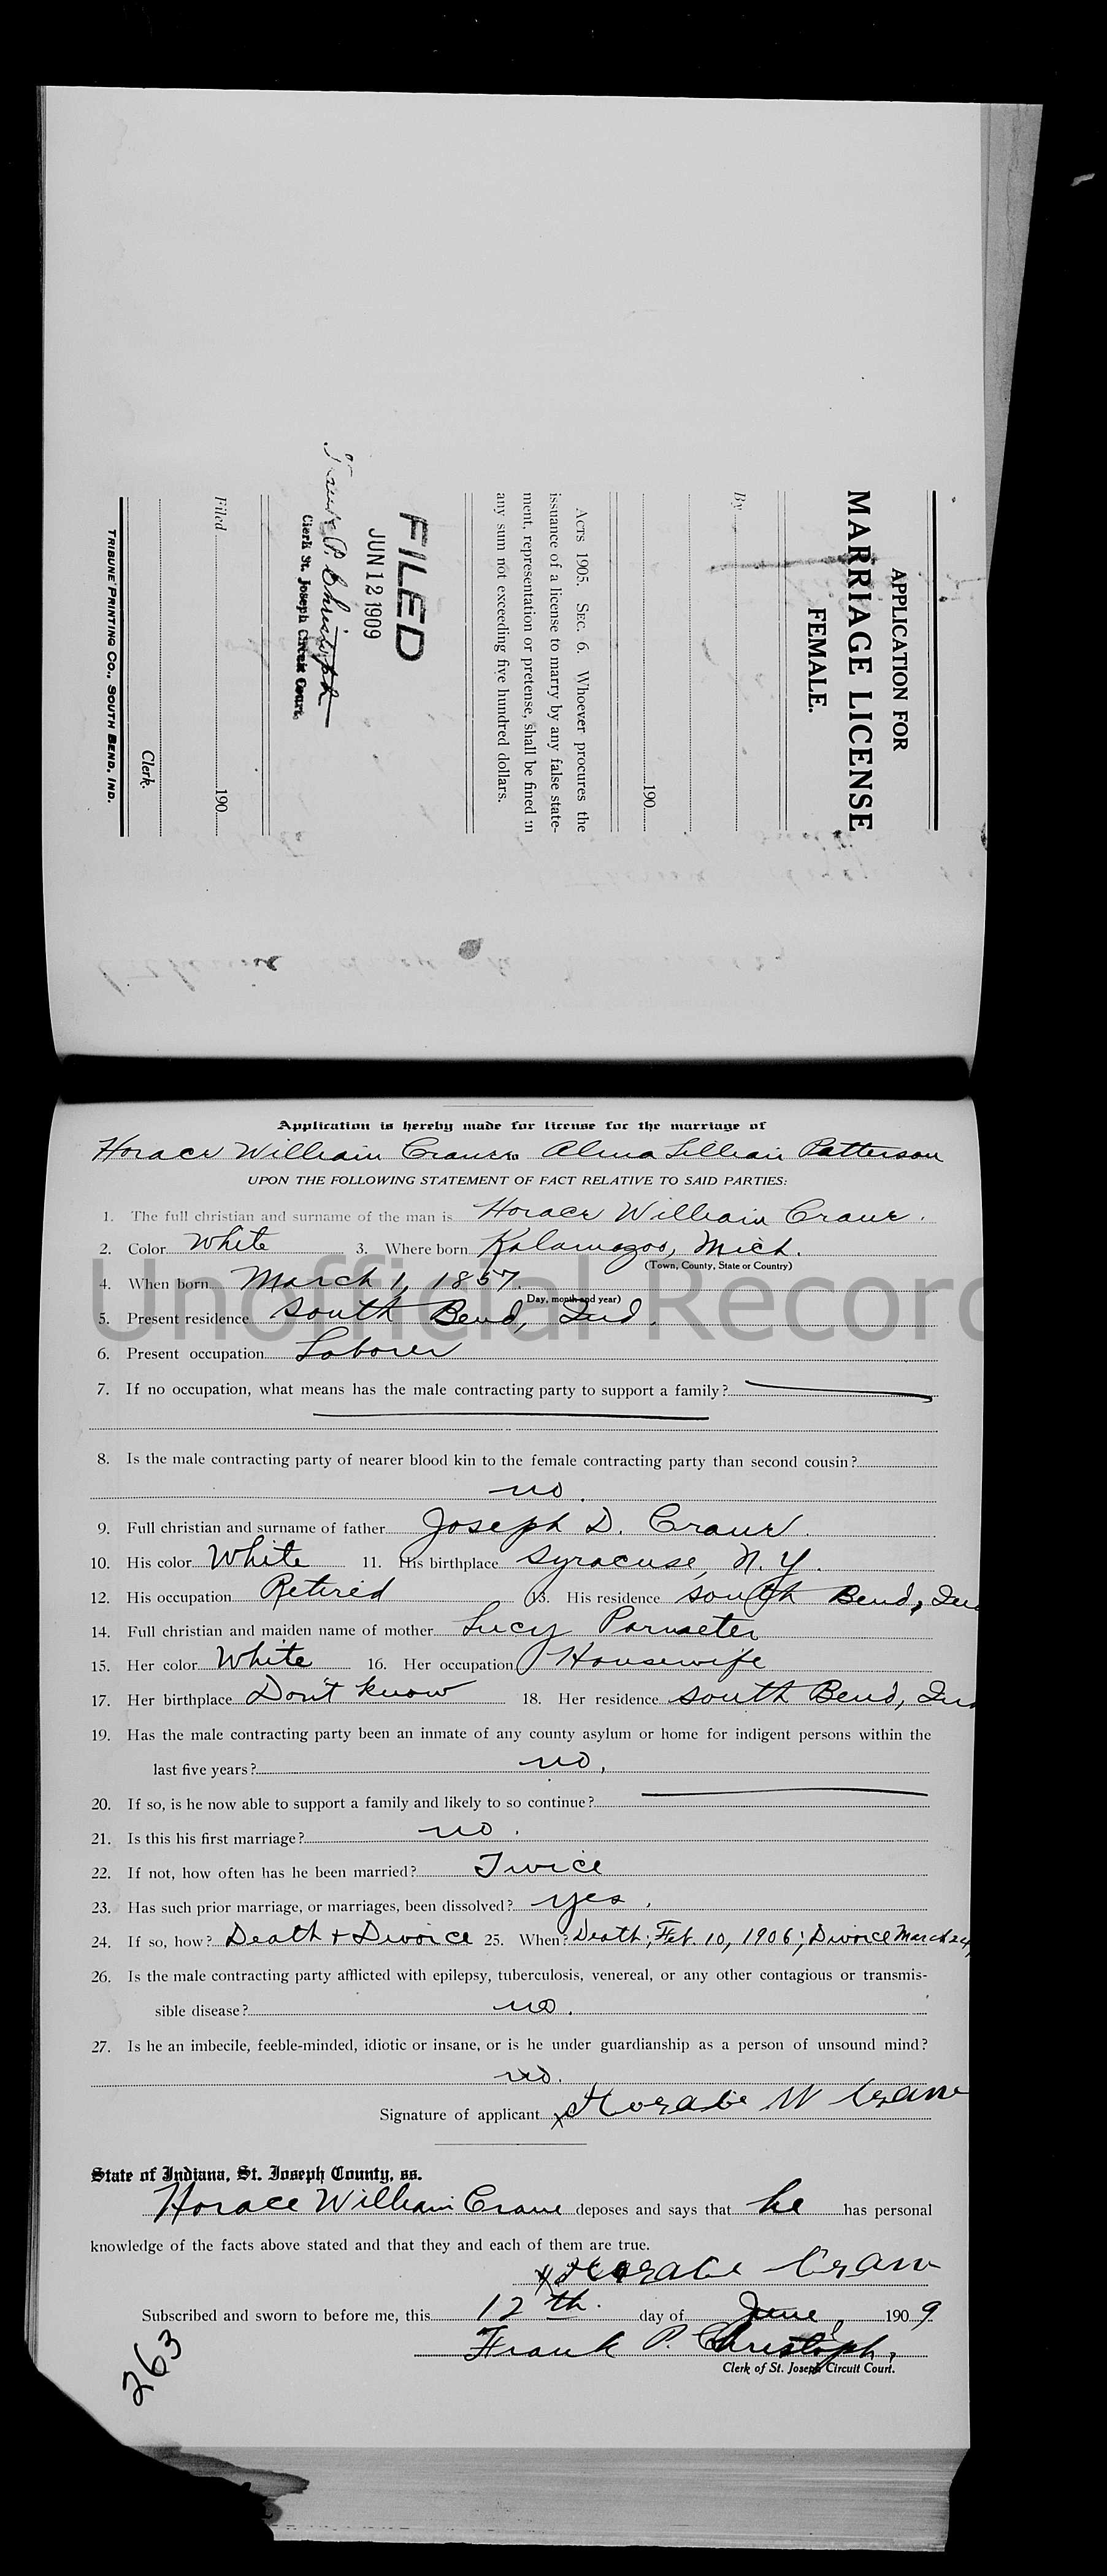 APPLICATION FOR
MARRIAGE LICENSE
FEMALE.
By
190
Acts 1905. Sec. 6. Whoever procures the
issuance of a license to marry by any false state-
ment, representation or pretense, shall be fined in
any sum not exceeding five hundred dollars.
FILED
JUN 12 1909
Frank P. Christoph
Clerk St. Joseph Circuit Court.
Filed 190
Clerk.
TRIBUNE PRINTING CO., SOUTH BEND, IND.
Application is hereby made for license for the marriage of
Horace William Crane to Alma Lillian Patterson
UPON THE FOLLOWING STATEMENT OF FACT RELATIVE TO SAID PARTIES:
1. The full christian and surname of the man is Horace William Crane.
2. Color White 3. Where born Kalamazoo, Mich.
(Town, County, State or Country)
4. When born March 1, 1857.
Day, month and year)
5. Present residence South Bend, Ind.
Unofficial Record
6. Present occupation Laborer
7. If no occupation, what means has the male contracting party to support a family?
8. Is the male contracting party of nearer blood kin to the female contracting party than second cousin?
no.
9. Full christian and surname of father Joseph D. Crane.
10. His color White 11. His birthplace Syracuse, N.Y.
12. His occupation Retired 13. His residence South Bend, Ind
14. Full christian and maiden name of mother Lucy Parmeter
15. Her color White 16. Her occupation Housewife
17. Her birthplace Don't know 18. Her residence South Bend, Ind
19. Has the male contracting party been an inmate of any county asylum or home for indigent persons within the
last five years? no.
20. If so, is he now able to support a family and likely to so continue?
21. Is this his first marriage? no.
22. If not, how often has he been married? Twice
23. Has such prior marriage, or marriages, been dissolved? yes.
24. If so, how? Death + Divorce 25. When? Death; Feb. 10, 1906; Divorce March 24,
26. Is the male contracting party afflicted with epilepsy, tuberculosis, venereal, or any other contagious or transmis-
sible disease? no.
27. Is he an imbecile, feeble-minded, idiotic or insane, or is he under guardianship as a person of unsound mind?
no.
Signature of applicant x Horace W Crane
State of Indiana, St. Joseph County, ss.
Horace William Crane deposes and says that he has personal
knowledge of the facts above stated and that they and each of them are true.
x Horace Crane
Subscribed and sworn to before me, this 12th. day of June, 1909
Frank P. Christoph,
Clerk of St. Joseph Circuit Court.
263